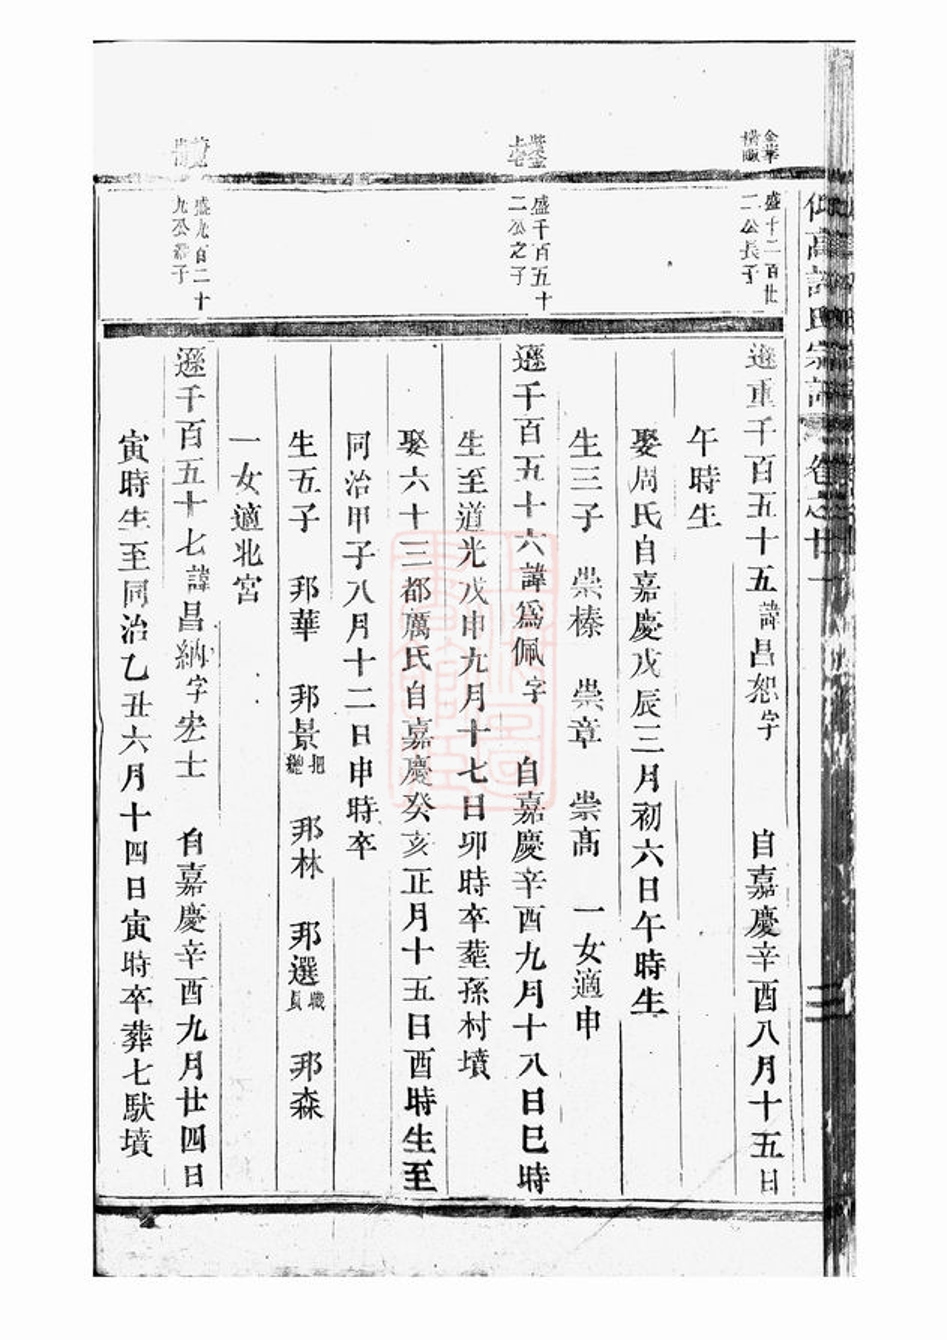 仰高許氏宗譜 卷之廿一 三
金峯
盛十二百廿
二公長子
遜重千百五十五諱昌恕字 自嘉慶辛酉八月十五日
午時生
娶周氏自嘉慶戊辰三月初六日午時生
生三子 崇榛 崇章 崇高 一女適申
盛千百五十
二公之子
遜千百五十六諱爲佩字 自嘉慶辛酉九月十八日巳時
生至道光戊申九月十七日卯時卒葬孫村墳
娶六十三都厲氏自嘉慶癸亥正月十五日酉時生至
同治甲子八月十二日申時卒
生五子 邦華 邦景把總 邦林 邦選職員 邦森
一女適北宮
盛九百二十
九公 子
遜千百五十七諱昌納字宏士 自嘉慶辛酉九月廿四日
寅時生至同治乙丑六月十四日寅時卒葬七馱墳